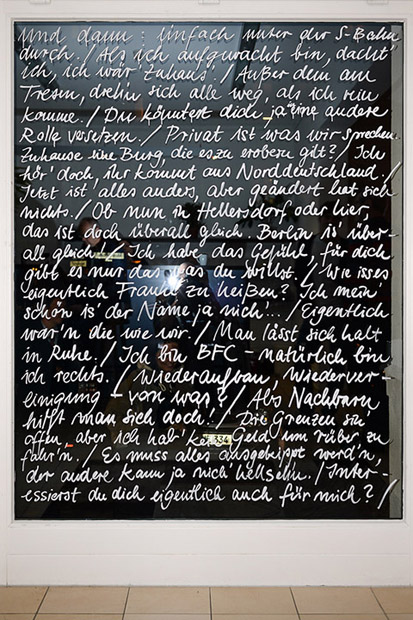 Und dann: einfach unter der S-Bahn
durch. / Als ich aufgewacht bin, dacht'
ich, ich wär' Zuhaus'. / Außer dem am
Tresen, dreh'n sich alle weg, als ich rein
komme. / Du könntest dich ja in 'ne andere
Rolle versetzen. / Privat ist was wir sprechen.
Zuhause eine Burg, die es zu erobern gilt? / Ich
hör' doch, ihr kommt aus Norddeutschland. /
Jetzt ist alles anders, aber geändert hat sich
nichts. / Ob nun in Hellersdorf oder hier,
das ist doch überall gleich. Berlin is' über-
all gleich. / Ich habe das Gefühl, für dich
gibt es nur das was du willst. / Wie isses
eigentlich Frau zu heißen? Ich mein'
schön is' der Name ja nich'... / Eigentlich
war'n die wie wir. / Man lässt sich halt
in Ruhe. / Ich bin BFC - natürlich bin
ich rechts. / Wiederaufbau, Wiederver-
einigung - von was? / Als Nachbarn
hilft man sich doch! / Die Grenzen sin'
offen, aber ich hab' kein Geld um rüber zu
fahr'n. / Es muss alles ausgebippt werd'n,
der andere kann ja nich' hellseh'n. / Inter-
essierst du dich eigentlich auch für mich? /
334